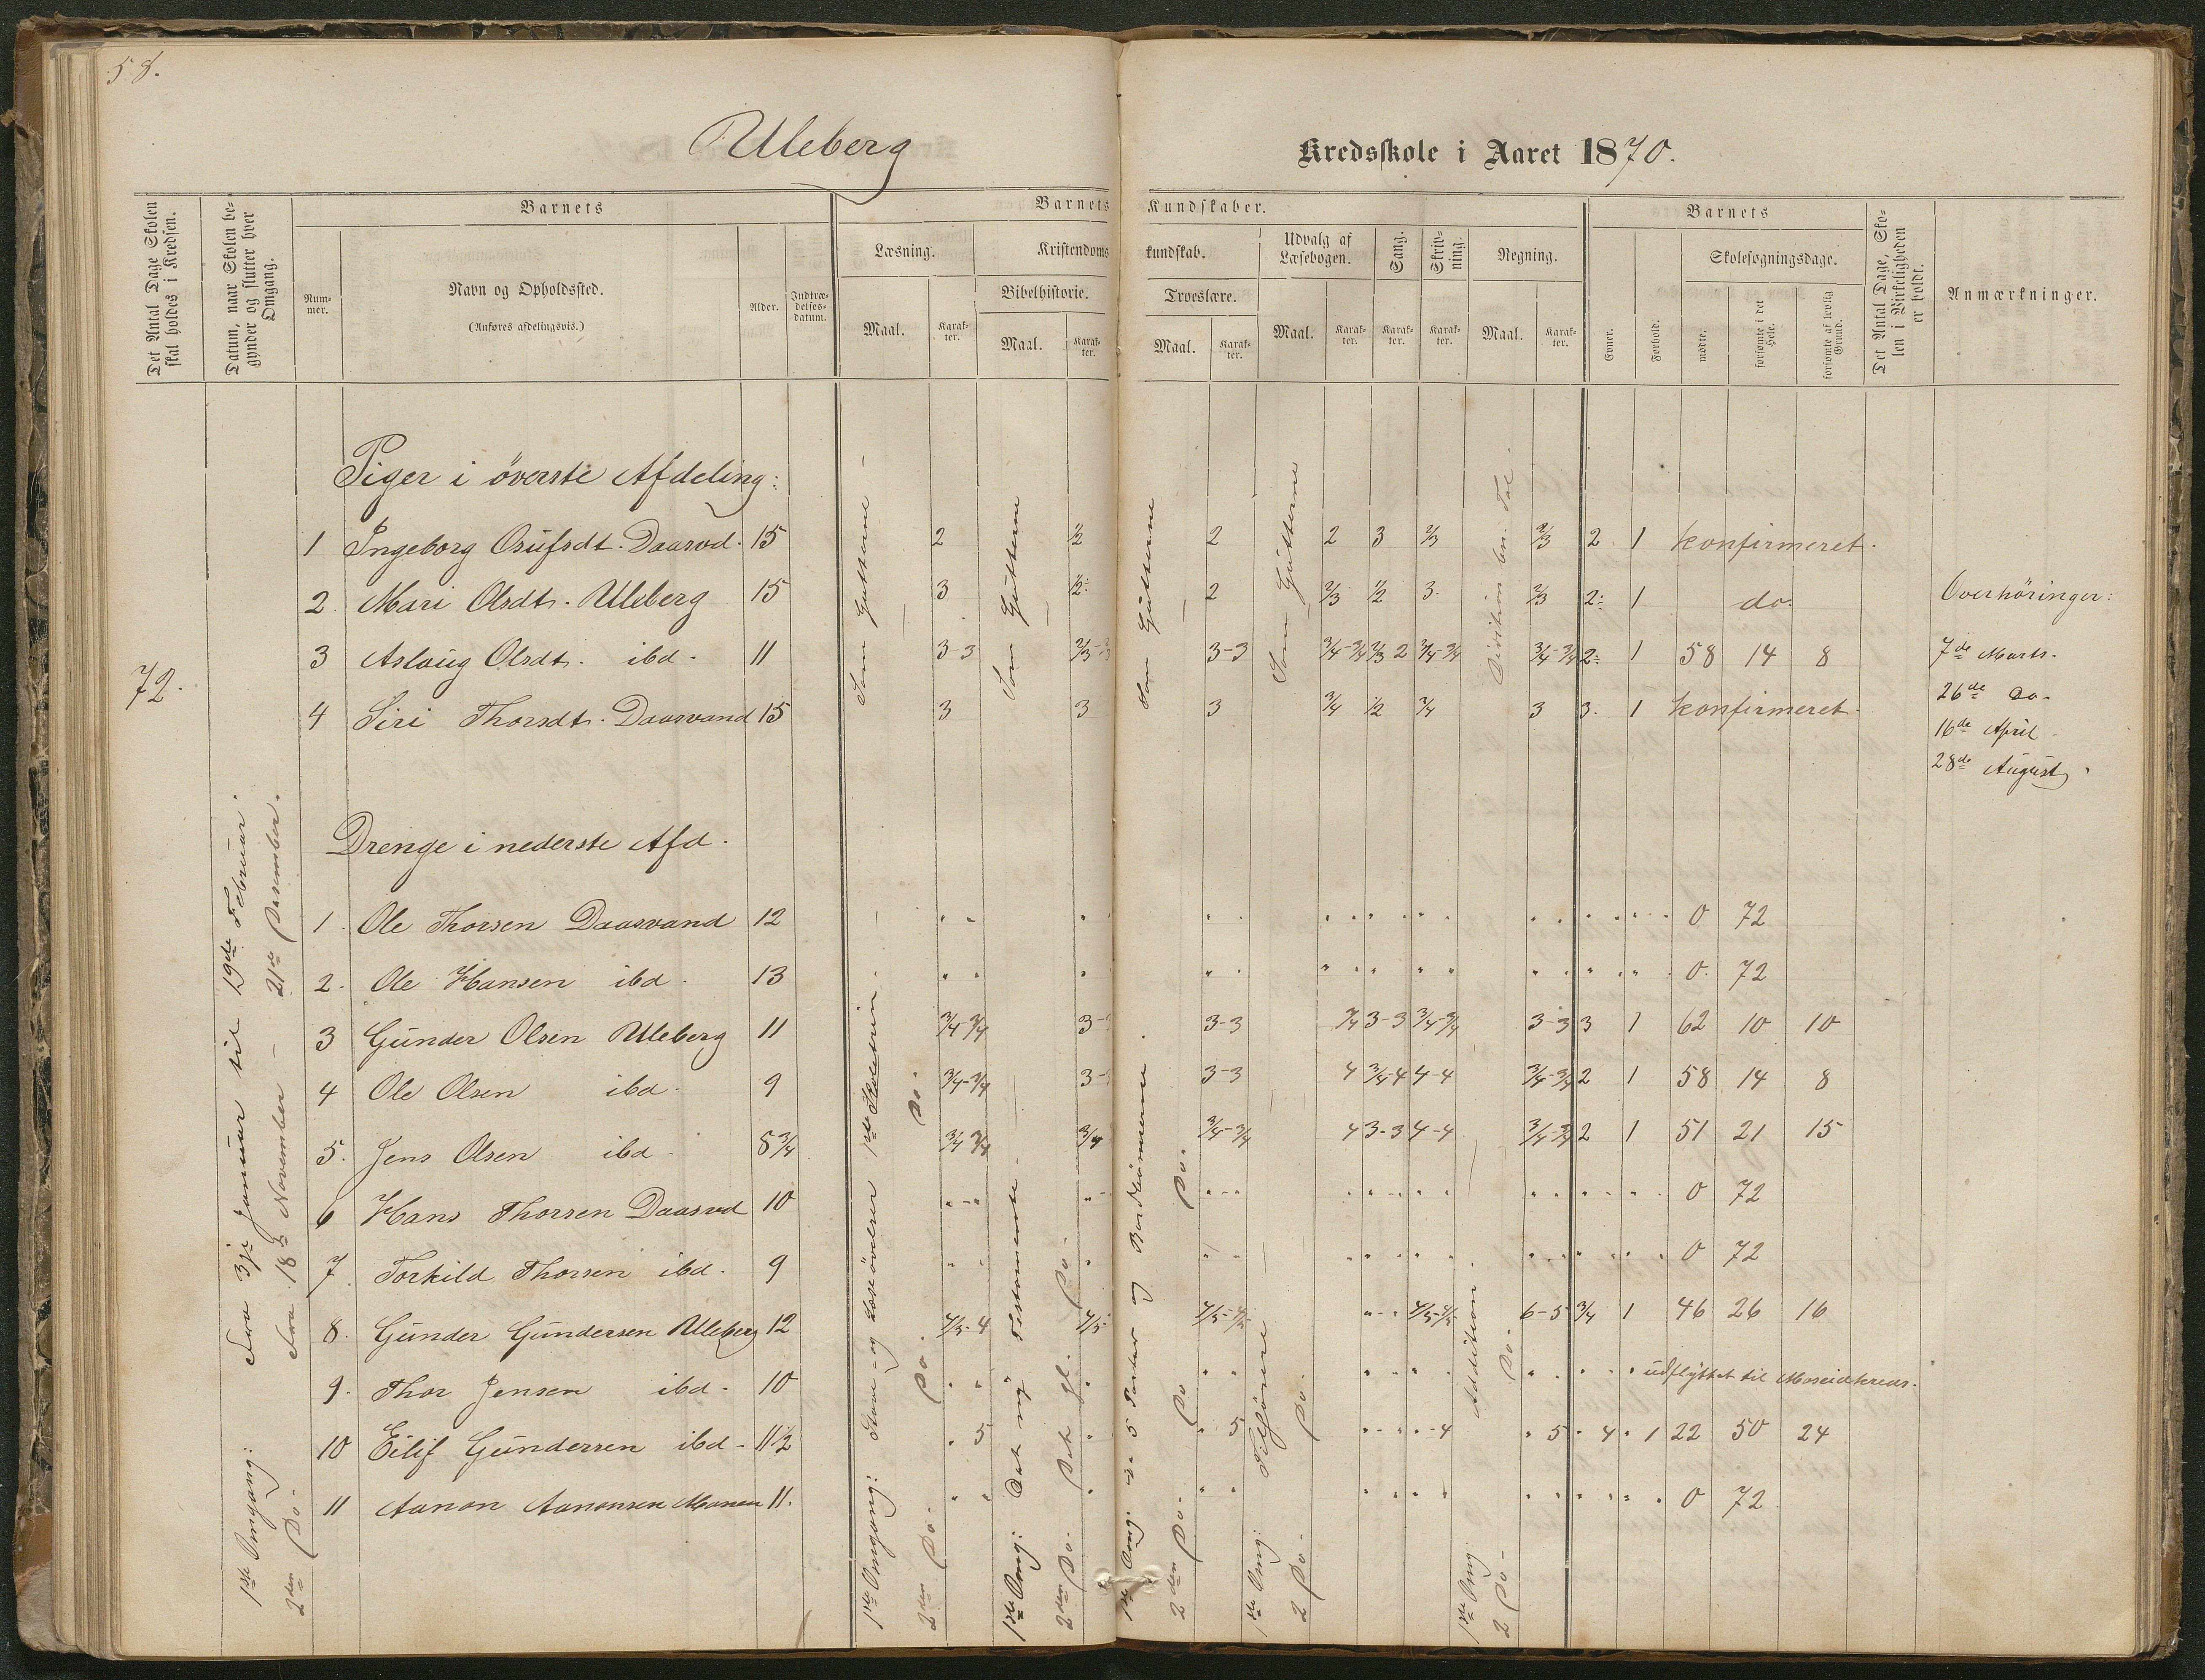 58.
Uleberg
Kredsskole i Aaret 1870.
Det Antal Dage Skolen skal holdes i Kredsen.
Datum, naar Skolen begynder og slutter hver Omgang.
Barnets
Nummer.
Navn og Opholdssted.
(Anføres afdelingsvis.)
Alder.
Indtrædelsesdatum.
Barnets Kundskaber.
Læsning.
Maal.
Karakter.
Kristendomskundskab.
Bibelhistorie.
Maal.
Karakter.
Troeslære.
Maal.
Karakter.
Udvalg af Læsebogen.
Maal.
Karakter.
Sang.
Karakter.
Skrivning.
Karakter.
Regning.
Maal.
Karakter.
Barnets
Evner.
Forhold.
Skolesøgningsdage.
mødte.
forsømte i det Hele.
forsømte af lovlig Grund.
Det Antal Dage, Skolen i Virkeligheden er holdt.
Anmærkninger.
72.
1ste Omgang: Fra 3je Januar til 19de Februar.
2den Do- Fra 18de November - 21de Desember.
Piger i överste Afdeling:
Som Gutterne
Som Gutterne
Som Gutterne
Som Gutterne
1 Ingeborg Osufsdt. Daasvd. 15 2 1/2 2 2 3 2/3 2/3 2 1 konfirmeret.
2. Mari Olsdt. Uleberg 15 3 1/2 2 2/3 1/2 3 2/3 2 1 do.
3 Aslaug Olsdt. ibd. 11 3-3 2/3 3-3 3/4-3/4 2/3 2 3/4-3/4 3/4-3/4 2 1 58 14 8
4 Siri Thorsdt. Daasvand 15 3 3 3 3/4 1/2 3/4 3 3. 1 konfirmeret
Overhöringer:
7de Marts.
26de do-
16de April
28de August
Drenge i nederste Afd.
1. Ole Thorsen Daasvand 12 0 72
2. Ole Hansen ibd. 13 0 72
3 Gunder Olsen Uleberg 11 3/4 3/4 3- 3-3 3/4 3-3 3/4-3/4 3-3 3 1 62 10 10
4 Ole Olsen ibd. 9 3/4-3/4 3- 3-3 4 3/4-4 4-4 3/4-3/4 2 1 58 14 8
5. Jens Olsen ibd 8 3/4 3/4 3/4 3/4 3/4-3/4 4 3-3 4-4 3/4-3/4 2 1 51 21 15
6 Hans Thorsen Daasvd 10 0 72
7. Torkild Thorsen ibd. 9 0 72
8. Gunder Gundersen Uleberg 12 4/5-4 4/5 4/5-4/5 4/5-4/5 6-5 3/4 1 46 26 16
9. Thor Jensen ibd. 10 udflyttet til Moseidkreds.
10 Eilif Gundersen ibd- 11 1/2 5 5 4 5 4 1 22 50 24
11 Aanon Aanonsen Monen 11. 0 72
1ste Omgang: Stave- og Læseövelser 1ste Skoletrin.
2den Do- Do. Do.
1ste Omg: Det ny Testamente
2den Do. Det gl. Do-
2den Do. Do Do.
1ste Omg:
2 Do- Do.
1ste Omg. Addition.
2 Do- Do.